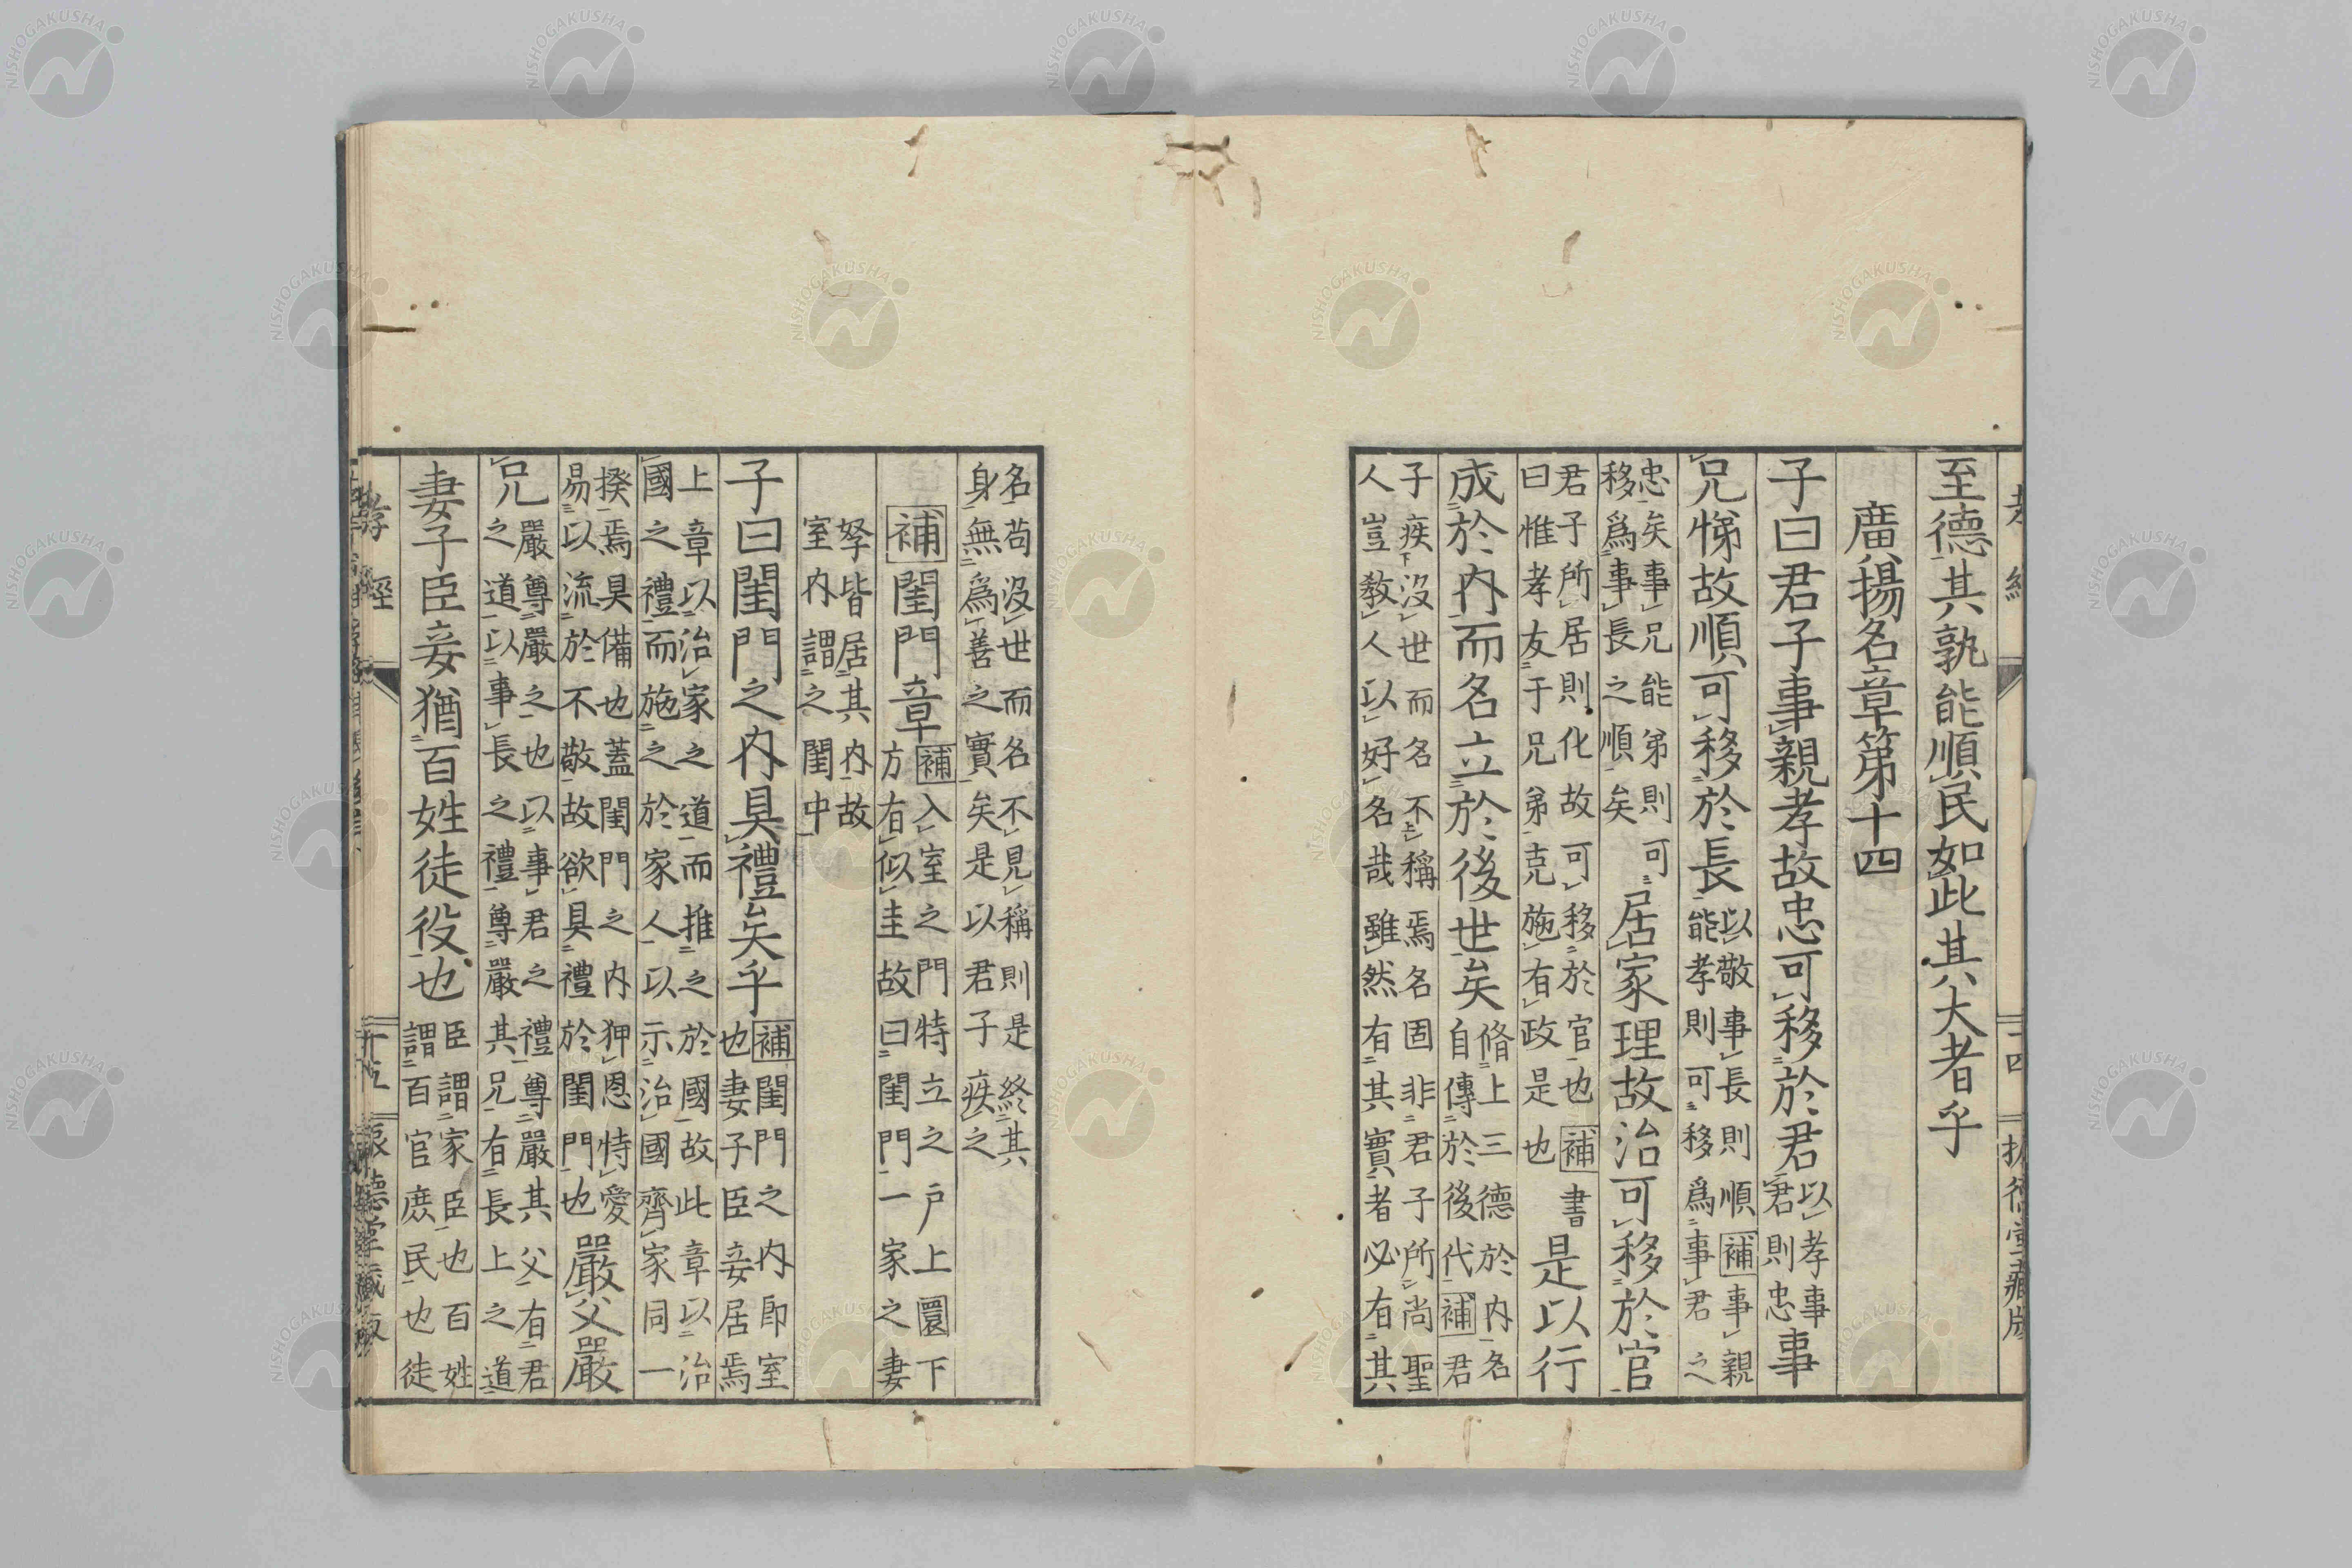 至德其孰能順民如此其大者乎
廣揚名章第十四
子曰君子事親孝故忠可移於君以孝事君則忠事
兄悌故順可移於長以敬事長則順補事親能孝則可移爲事君之
忠矣事兄能弟則可移爲事長之順矣居家理故治可移於官
君子所居則化故可移於官也補書曰惟孝友于兄弟克施有政是也是以行
成於内而名立於後世矣脩上三德於内名自傳於後代補君
子疾沒世而名不稱焉名固非君子所尚聖
人豈敎人以好名哉雖然有其實者必有其
名苟沒世而名不見稱則是終其
身無爲善之實矣是以君子疾之
補閨門章補入室之門特立之戸上圜下方有似圭故曰閨門一家之妻
孥皆居其内故
室内謂之閨中
子曰閨門之内具禮矣乎補閨門之内即室也妻子臣妾居焉
上章以治家之道而推之於國故此章以治
國之禮而施之於家人以示治國齊家同一
揆焉具備也蓋閨門之内狎恩恃愛易以流於不敬故欲具禮於閨門也嚴父嚴
兄嚴尊嚴之也以事君之禮尊嚴其父有君之道以事長之禮尊嚴其兄有長上之道
妻子臣妾猶百姓徒役也臣謂家臣也百姓謂百官庶民也徒
孝經 十五 振德堂藏版
NISHOGAKUSHA